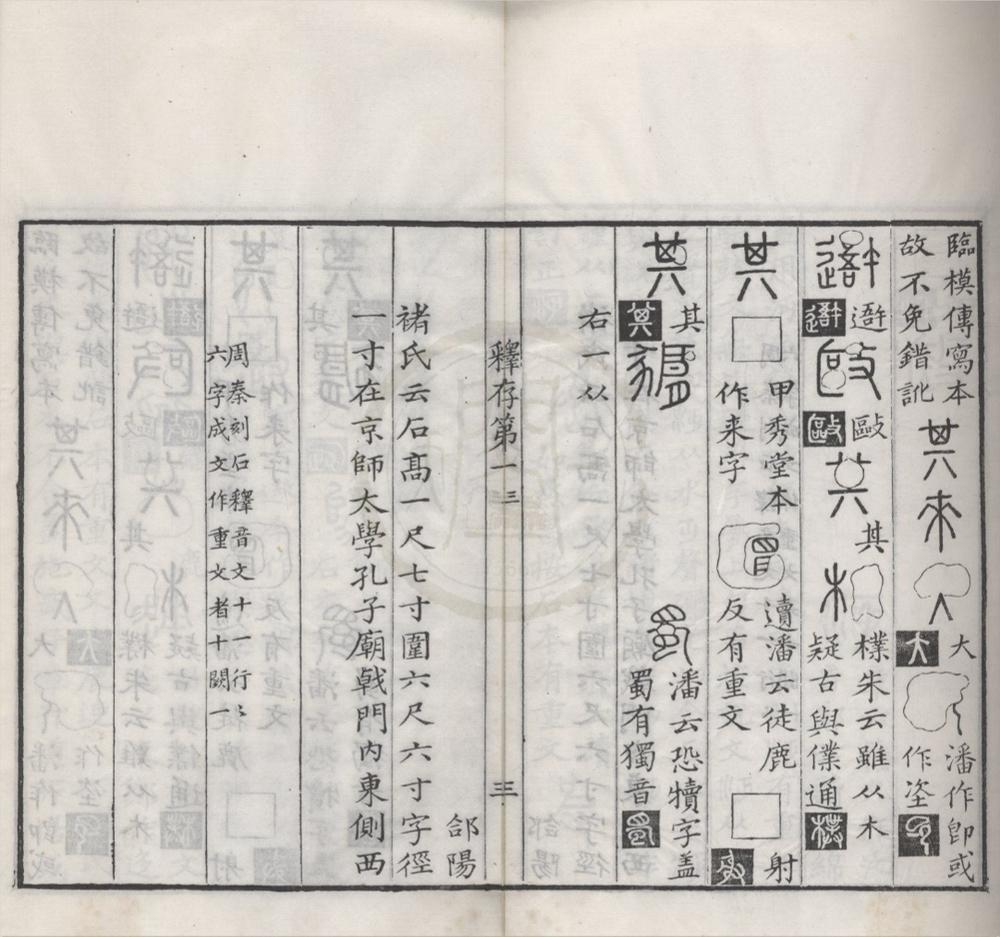 臨模傳寫本
故不免錯訛
其來
大
潘作即或
作
敺
其
樸朱云雖从木
疑古與僕通
其□
甲秀堂本
作来字
潘云徒鹿
反有重文
□
射
其
其
蜀
潘云恐犢字盖
蜀有獨音
右一从
釋存第一 三
三
郃陽
褚氏云石髙一尺七寸圍六尺六寸字徑
一寸在京師太學孔子廟㦸門內東側西
周秦刻石釋音文十一行〻
六字成文作重文者十闕一